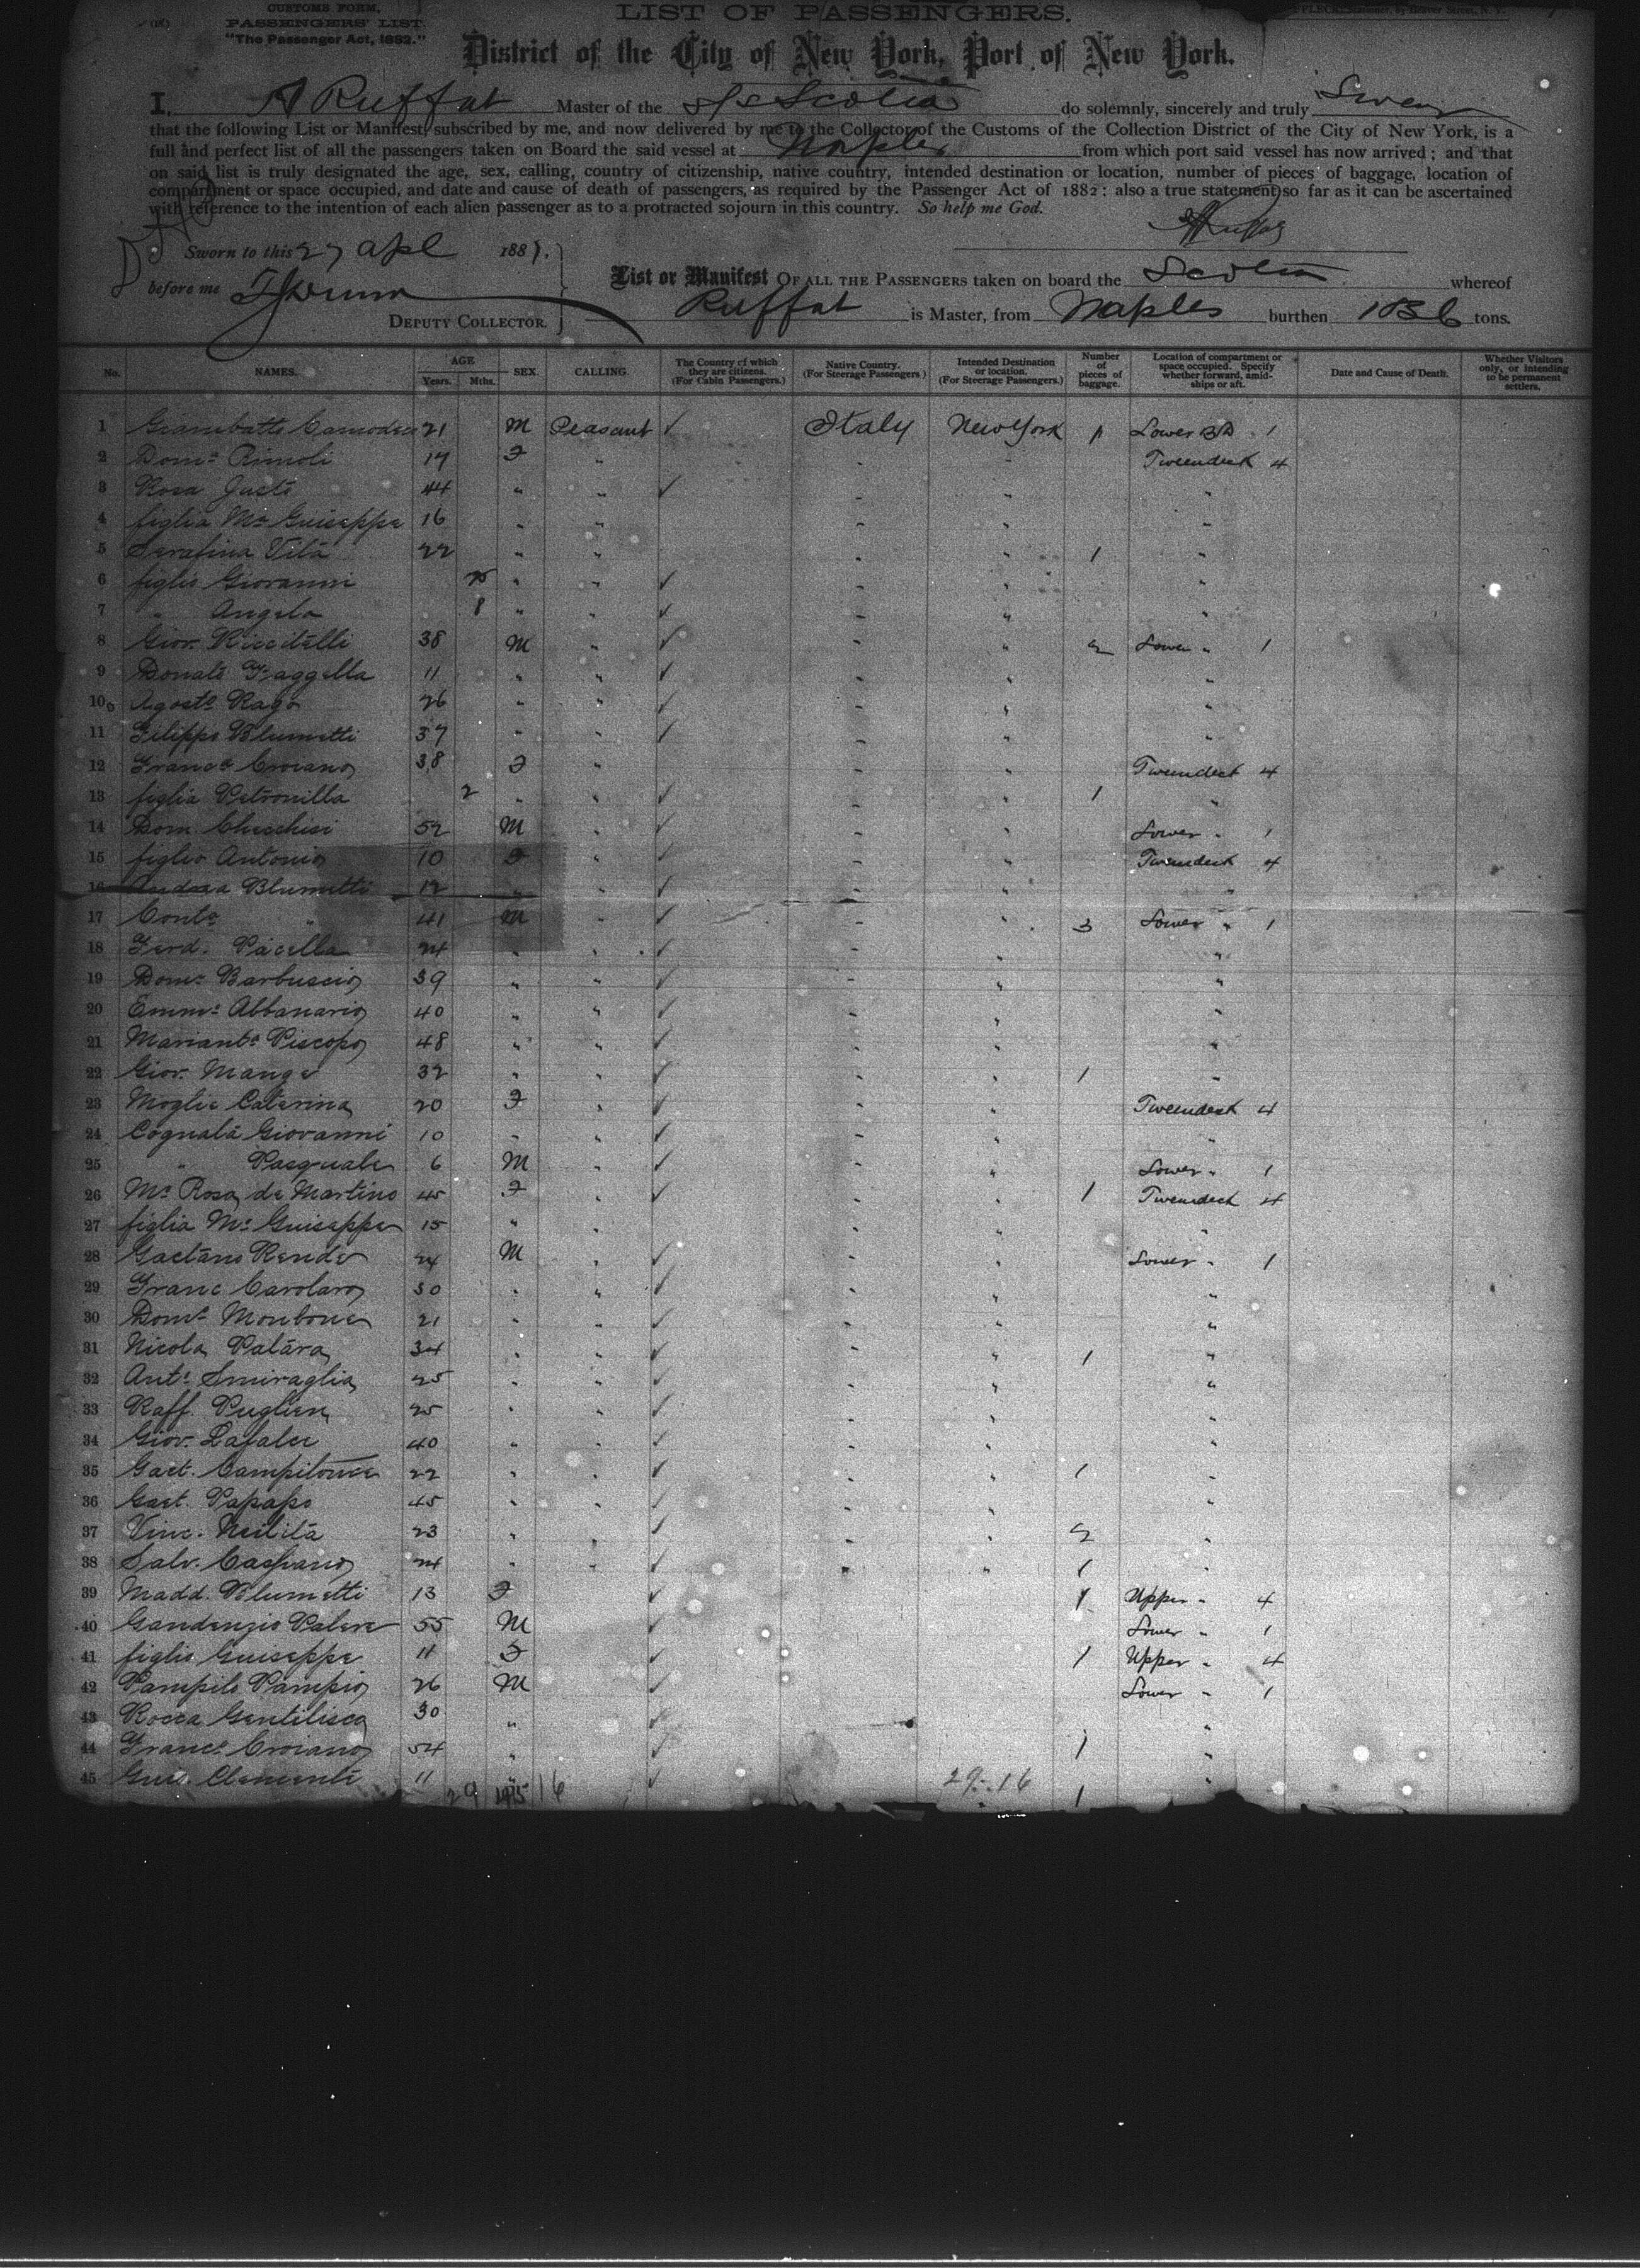 CUSTOMS FORM.
PASSENGERS' LIST.
"The Passenger Act, 1882."
LIST OF PASSENGERS.
District of the City of New York, Port of New York.
I, A Ruffat Master of the SS Scotia do solemnly, sincerely and truly Swear
that the following List or Manifest, subscribed by me, and now delivered by me to the Collector of the Customs of the Collection District of the City of New York, is a
full and perfect list of all the passengers taken on Board the said vessel at Naples from which port said vessel has now arrived; and that
on said list is truly designated the age, sex, calling, country of citizenship, native country, intended destination or location, number of pieces of baggage, location of
compartment or space occupied, and date and cause of death of passengers, as required by the Passenger Act of 1882: also a true statement so far as it can be ascertained
with reference to the intention of each alien passenger as to a protracted sojourn in this country. So help me God.
A Ruffat
Sworn to this 27 Apl 1887.
before me
DEPUTY COLLECTOR.
List or Manifest OF ALL THE PASSENGERS taken on board the Scotia whereof
Ruffat is Master, from Naples burthen 1036 tons.
No. NAMES. AGE Years. Mths. SEX. CALLING. The Country of which they are citizens. (For Cabin Passengers.) Native Country. (For Steerage Passengers.) Intended Destination or location. (For Steerage Passengers.) Number of pieces of baggage. Location of compartment or space occupied. Specify whether forward, amidships or aft. Date and Cause of Death. Whether Visitors only, or intending to be permanent settlers.
1 21 M Peasant ✓ Italy New York 1 Lower 1
2 Domca Rimoli 17 F " " " Tweendeck 4
3 Rosa Juste 44 " " ✓ " " "
4 figlia Ma Guiseppa 16 " " " " "
5 Serafina Vitá 22 " " " " 1 "
6 figlio Giovanni " " ✓ " " "
7 " Angela 8 " " ✓ " " "
8 Giov. Riccitelli 38 M " ✓ " " 2 Lower " 1
9 Donato Fraggella 11 " " ✓ " " "
10 Agosto Rago 26 " " ✓ " " "
11 Filippo Blumetti 37 " " ✓ " " "
12 Franca Croiano 38 F " " " Tweendeck 4
13 figlia Petronilla 2 " " ✓ " " 1 "
14 Dom. Checchisi 52 M " ✓ " " Lower " 1
15 figlio Antonio 10 F " ✓ " " Tweendeck 4
16 Andrea Blumetti 12 " " ✓ " " "
17 Conte " 41 M " ✓ " " 3 Lower " 1
18 Ferd. Pacella 24 " " ✓ " " "
19 Domco Barbuscio 39 " " ✓ " " "
20 Emmo Abbanario 40 " " ✓ " " "
21 Marianto Piscopo 48 " " ✓ " " "
22 Giov. Mango 32 " " ✓ " " 1 "
23 Moglie Caterina 20 F " ✓ " " Tweendeck 4
24 Cognatá Giovanni 10 " " ✓ " " "
25 " Pasquale 6 M " ✓ " " Lower " 1
26 Ma Rosa de Martino 45 F " ✓ " " 1 Tweendeck 4
27 figlia Ma Guiseppa 15 " " " " "
28 Gaetano Rende 24 M " ✓ " " Lower " 1
29 Franc Carolaro 30 " " ✓ " " "
30 Domco Monbone 21 " " ✓ " " "
31 Nicola Palára 34 " " ✓ " " 1 "
32 Anto Smiraglia 25 " " ✓ " " "
33 Raff. Puglien 25 " " ✓ " " "
34 Giov. Lafalce 40 " " ✓ " " "
35 Gaet. Campitonie 22 " " ✓ " " 1 "
36 Gaet. Papapo 45 " " ✓ " " "
37 Vinc. 23 " " ✓ " " 2 "
38 Salv. Caspano 24 " " ✓ " " 1 "
39 Madd. Blumetti 13 F ✓ 1 Upper " 4
40 Gandenzio 55 M ✓ Lower " 1
41 figlio Guiseppe 11 F ✓ 1 Upper " 4
42 Pampilo Pampio 26 M ✓ Lower " 1
43 Rocca Gentilisca 30 " ✓ "
44 Franco Croiano 54 " ✓ 1 "
45 Gius. Clementé 11 " ✓ 1 "
29 16 29-16